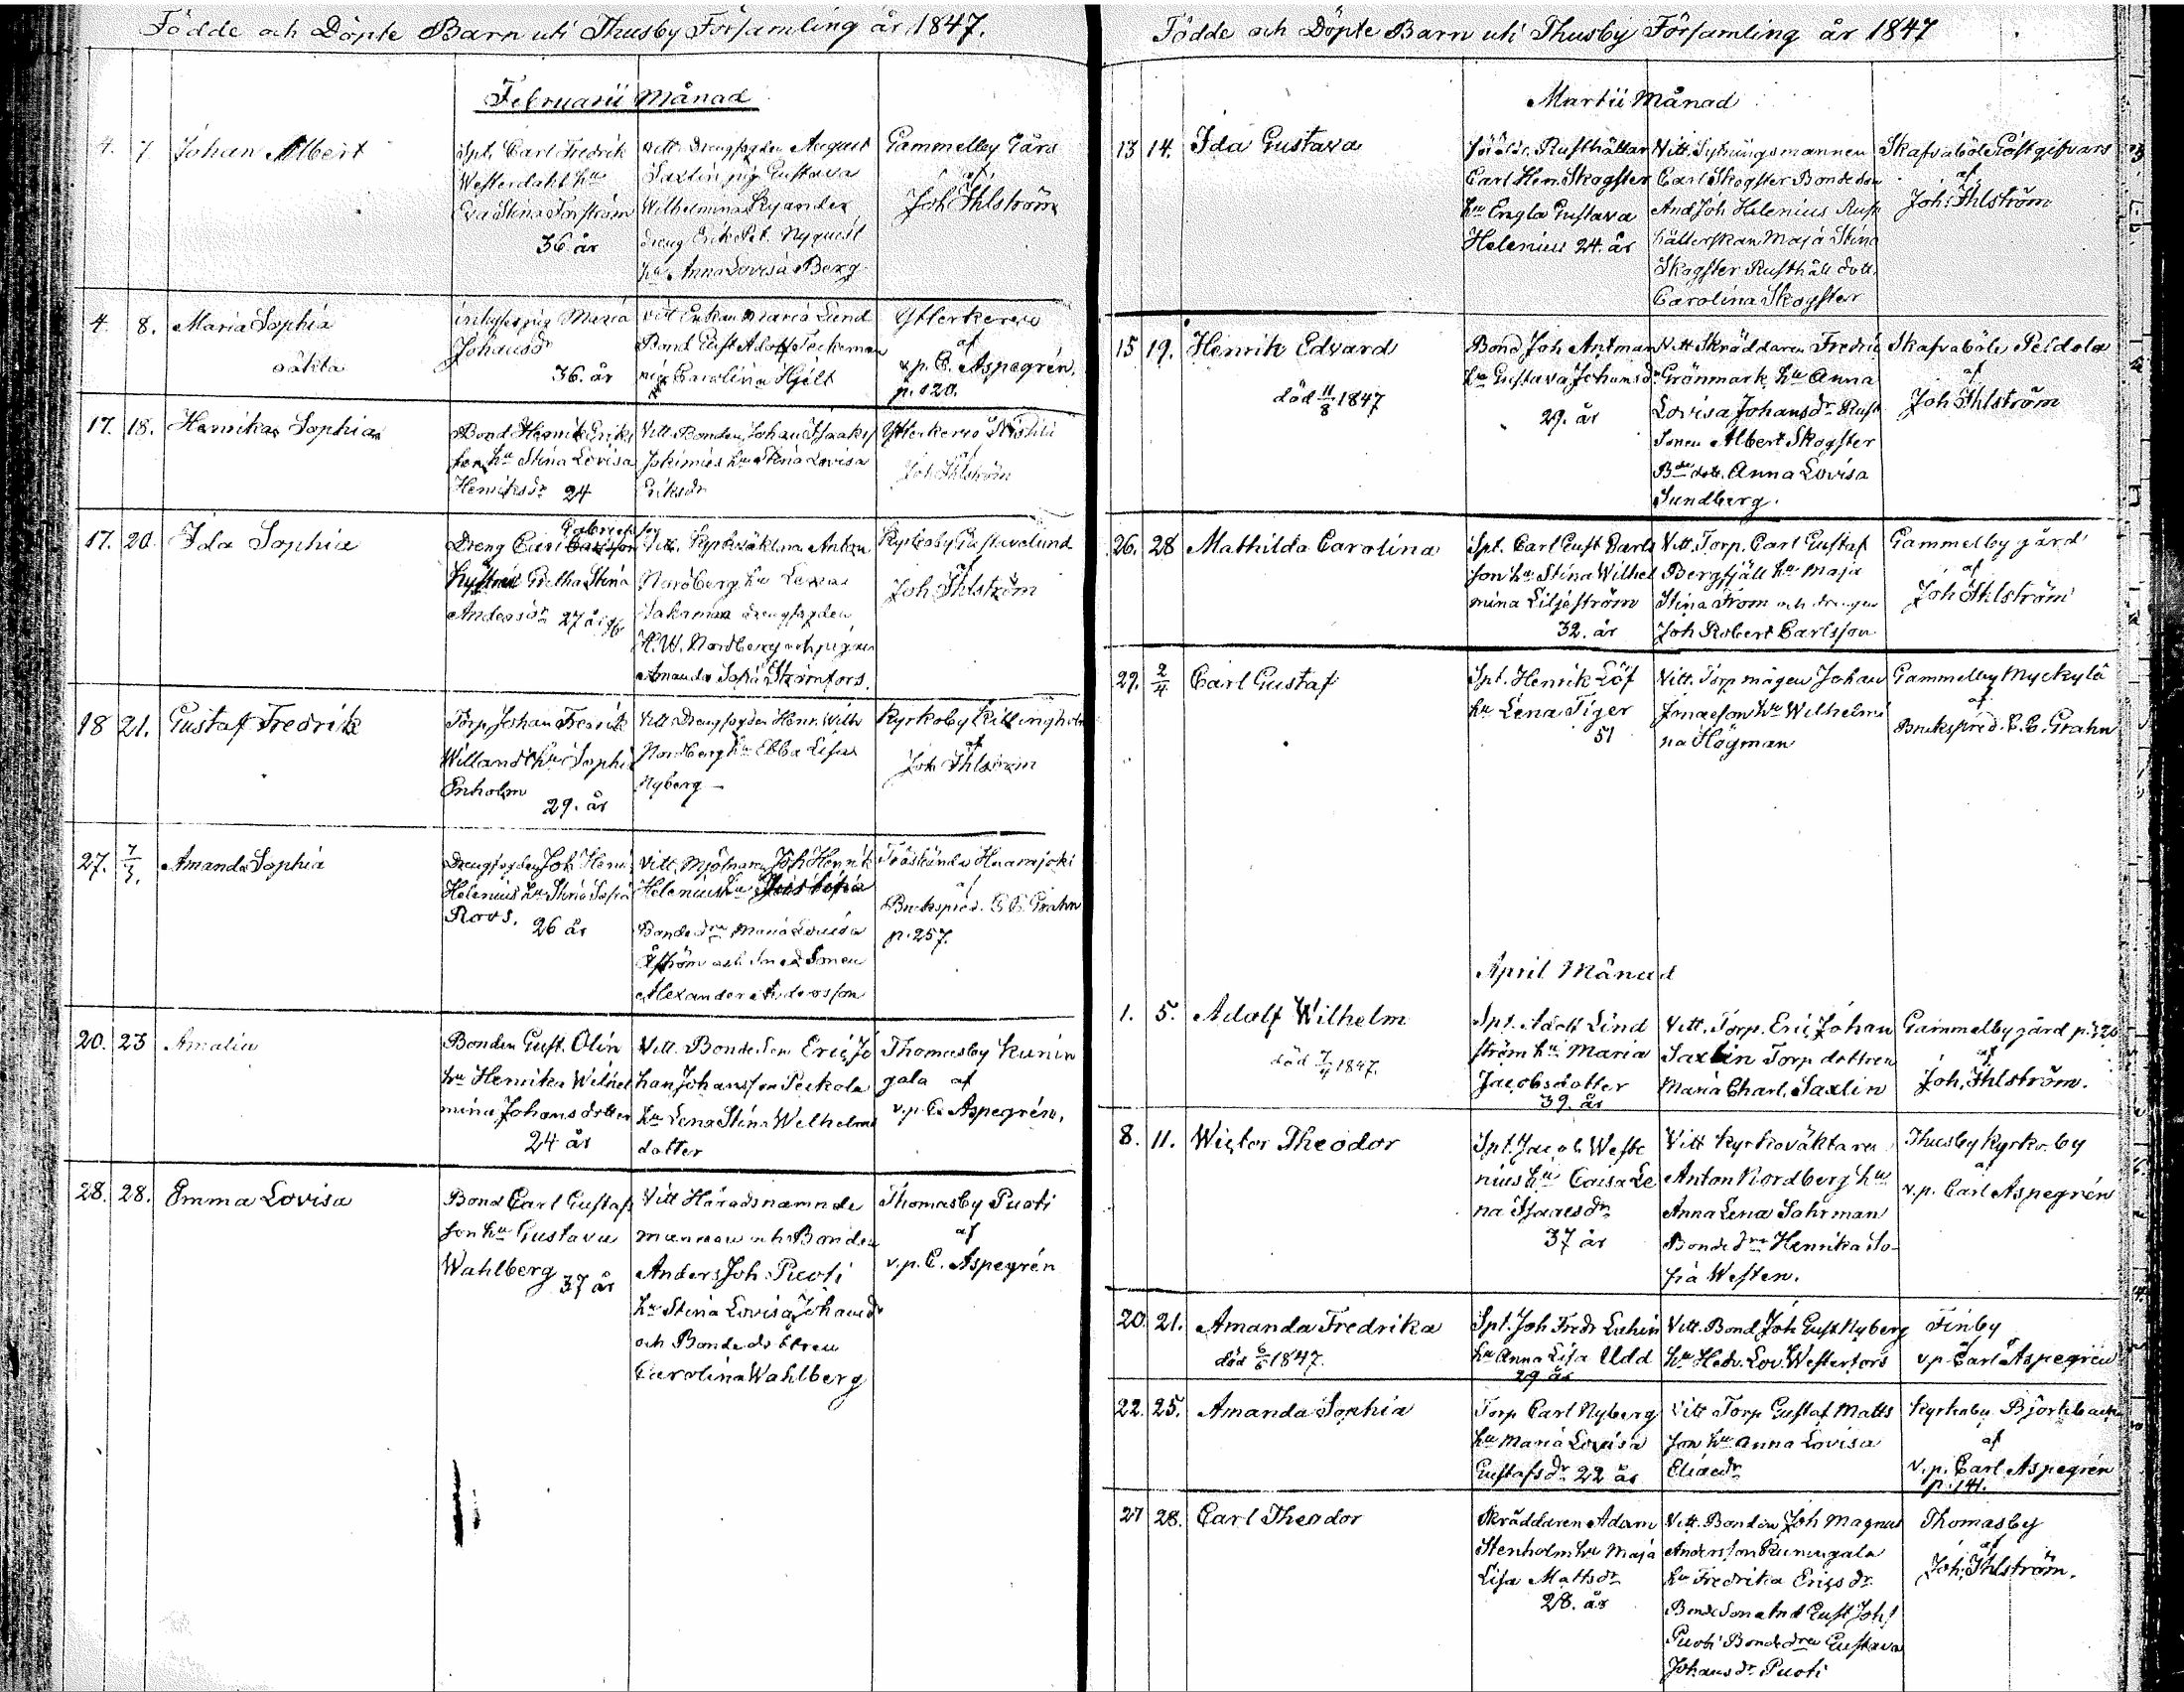 Födde och Döpte Barn uti Thusby Församling år 1847.
Februarii Månad
4. 7. Johan Albert
Spt. Carl Fredrik
Westerdahl hu
Eva Stina Törnström
36. år
Vitt. Drengfogden August
Saxlin pig Gustava
Wilhelmina Kyander
dreng Erik Pet. Nyqvist
hu Anna Lovisa Berg
Gammelby Gård
af
Joh Ihlström
4. 8. Maria Sophia
oäkta
inhyses pig Maria
Johansdr
36. år
Vitt Enkan Maria Lund
Bond Gust Adolf Teckeman
pig Carolina Hjelt
Ytterkervo
af
v.p. C. Aspegrén.
p. 120.
17. 18. Henrika Sophia
Bond Henrik Eriks
son hu Stina Lovisa
Henriksdr 24
Vitt. Bonden Johan Isaaks
Jokimies hu Stina Lovisa
Eriksdr
Ytterkervo
af
Joh Ihlström
17. 20. Ida Sophia
Dreng Carl Gabrielsson
hustrun Gretha Stina
Andersdr 27 år
Vitt. Kyrkväktaren Anton
Nordberg hu Lena
Sahrman drengfogden
H. W. Nordberg och pigan
Amanda Sofia Strömfors.
Kyrkoby Gustavelund
af
Joh Ihlström
18 21. Gustaf Fredrik
Torp. Johan Fredrik
Willandt hu Sophia
Enholm
29. år
Vitt Drengfogden Henr. Wilh
Nordberg hu Ebba Lisa
Nyberg
Kyrkoby Killingholm
af
Joh Ihlström
27. 7/3. Amanda Sophia
Drengfogden Joh Henr
Helenius hu Stina Sofia
Roos. 26 år
Vitt. Mjölnaren Joh Henrik
Helenius hu
Bondedrn Maria Lovisa
Åström och Smedsonen
Alexander Andersson
Träskända Haarajoki
af
Brukspred. C. C. Grahn
p. 257.
20. 23 Amalia
Bonden Gust. Olin
hu Henrika Wilhel
mina Johansdotter
24 år
Vitt. Bondeson Eric Jo
han Johansson Peekola
hu Lena Stina Wilhelms
dotter
Thomasby Kunin
gala af
v.p. C. Aspegrén.
28. 28. Emma Lovisa
Bond Carl Gustafs
son hu Gustava
Wahlberg 37 år
Vitt Häradsnämnde
mannen och Bonden
Anders Joh. Puoti
hu Stina Lovisa Johansdr
och Bondedottren
Carolina Wahlberg
Thomasby Puoti
af
v.p. C. Aspegrén
Födde och Döpte Barn uti Thusby Församling år 1847
Martii Månad
13 14. Ida Gustava
föräldr. Rusthållar
Carl Henr. Skogster
hu Engla Gustava
Helenius 24. år
Vitt. Sytningsmannen
Carl Skogster Bondeson
And Joh Helenius Rust
hållerskan Maja Stina
Skogster Rusthåll dott.
Carolina Skogster
Skafvaböle Gästgifvars
af
Joh. Ihlström
15 19. Henrik Edvard
död 11/8 1847
Bond Joh Antman
hu Gustava Johansdr
29. år
Vitt Skräddaren Fredric
Grönmark hu Anna
Lovisa Johansdr Rust
sonen Albert Skogster
Bde dott. Anna Lovisa
Sundberg.
Skafvaböle Peldola
af
Joh Ihlström
26. 28 Mathilda Carolina
Spt. Carl Gust Carls
son hu Stina Wilhel
mina Liljeström
32. år
Vitt. Torp. Carl Gustaf
Bergfjäll hu Maja
Stina From och drengen
Joh Robert Carlsson
Gammelby gård
af
Joh Ihlström
29. 2/4 Carl Gustaf
Spt. Henrik Löf
hu Lena Tiger
51
Vitt. Torpmågen Johan
Jonasson hu Wilhelmi
na Högman
Gammelby Myckylä
af
Brukspred. C. C. Grahn
April Månad
1. 5. Adolf Wilhelm
död 7/4 1847.
Spt. Adolf Lind
ström hu Maria
Jacobsdotter
39. år
Vitt. Torp. Eric Johan
Saxlin Torpdottren
Maria Charl. Saxlin
Gammelby gård
af
Joh. Ihlström.
8. 11. Wictor Theodor
Spt. Jacob Weste
nius hu Caisa Le
na Isaacsdr
37 år
Vitt Kyrkoväktaren
Anton Nordberg hu
Anna Lena Sahrman
Bondedrn Henrika So-
fia Westen.
Thusby Kyrkoby
af
v.p. Carl Aspegrén
20. 21. Amanda Fredrika
död 6/6 1847.
Spt. Joh Fredr Luhin
hu Anna Lisa Udd
29 år
Vitt. Bond Joh Gust Nyberg
hu Hedv. Lov. Westerfors
Finby
af
v.p. Carl Aspegrén
22. 25. Amanda Sophia
Torp Carl Nyberg
hu Maria Lovisa
Gustafsdr 22 år
Vitt Torp Gustaf Matts
son hu Anna Lovisa
Eliaedr
Kyrkoby Björkbacka
af
v.p. Carl Aspegrén
p. 141.
27 28. Carl Theodor
Skräddaren Adam
Stenholm hu Maja
Lisa Mattsdr
28. år
Vitt. Bonden Joh Magnus
Andersson Kuningala
hu Fredrika Ericsdr
Bondeson And Gust Johs
Puoti Bondedrn Gustava
Johansdr Puoti
Thomasby
af
Joh. Ihlström.